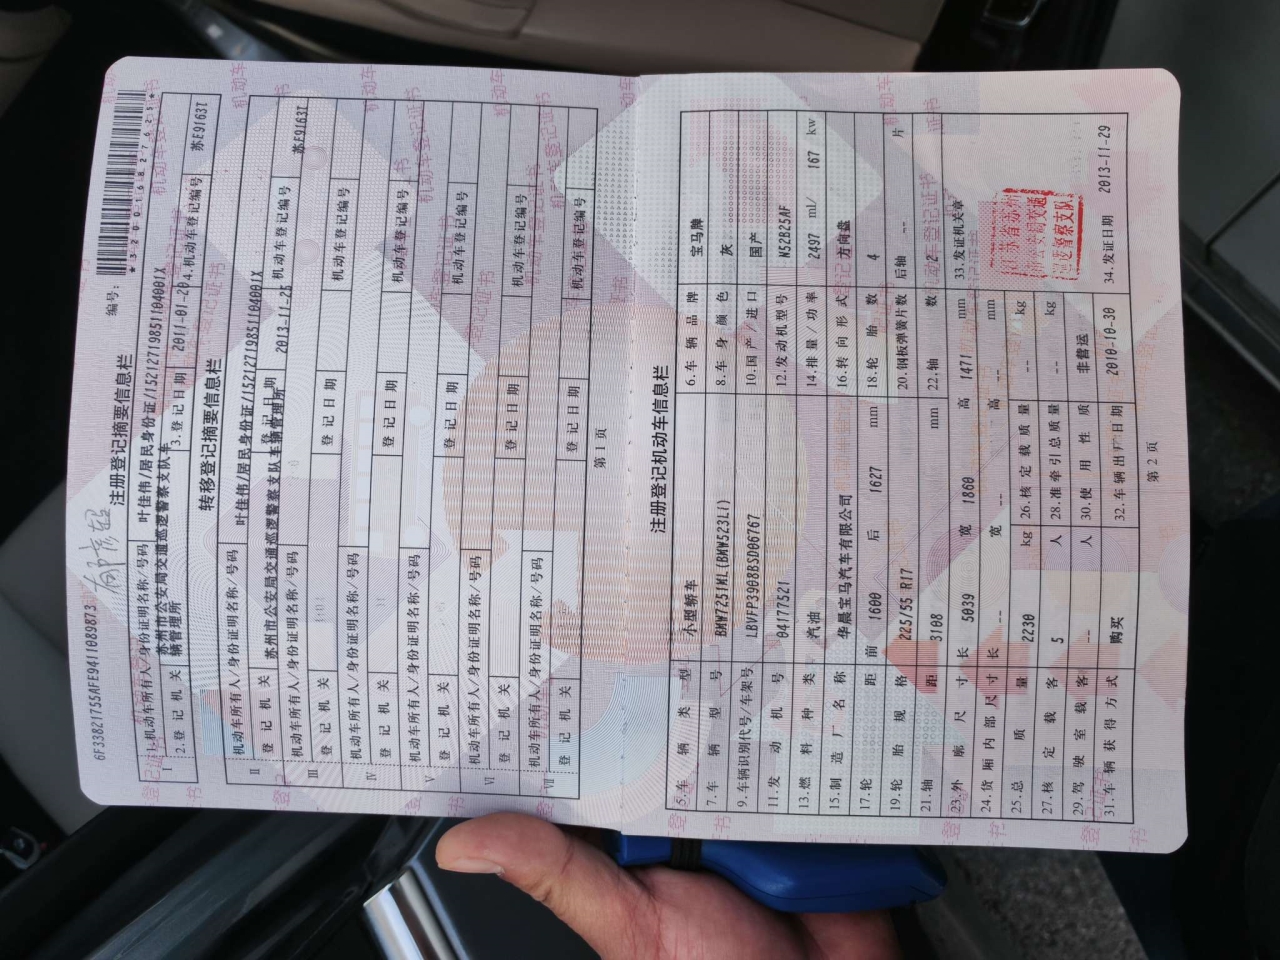 6F33821755AFE9411089873
注册登记摘要信息栏
编号:
*320016827625*
I
1.机动车所有人/身份证明名称/号码 叶佳伟/居民身份证/15212719851104001X
2.登记机关 苏州市公安局交通巡逻警察支队车辆管理所 3.登记日期 2011-01-20 4.机动车登记编号 苏E9163T
转移登记摘要信息栏
II
机动车所有人/身份证明名称/号码 叶佳伟/居民身份证/15212719851104001X
登记机关 苏州市公安局交通巡逻警察支队车辆管理所 登记日期 2013-11-25 机动车登记编号 苏E9163T
III
机动车所有人/身份证明名称/号码
登记机关 登记日期 机动车登记编号
IV
机动车所有人/身份证明名称/号码
登记机关 登记日期 机动车登记编号
V
机动车所有人/身份证明名称/号码
登记机关 登记日期 机动车登记编号
VI
机动车所有人/身份证明名称/号码
登记机关 登记日期 机动车登记编号
VII
机动车所有人/身份证明名称/号码
登记机关 登记日期 机动车登记编号
第 1 页
注册登记机动车信息栏
5.车辆类型 小型轿车 6.车辆品牌 宝马牌
7.车辆型号 BMW7251ML(BMW523LI) 8.车身颜色 灰
9.车辆识别代号/车架号 LBVFP3908BSD06767 10.国产/进口 国产
11.发动机号 04177521 12.发动机型号 N52B25AF
13.燃料种类 汽油 14.排量/功率 2497 ml/ 167 kw
15.制造厂名称 华晨宝马汽车有限公司 16.转向形式 方向盘
17.轮距 前 1600 后 1627 mm 18.轮胎数 4
19.轮胎规格 225/55 R17 20.钢板弹簧片数 后轴 -- 片
21.轴距 3108 mm 22.轴数 2
23.外廓尺寸 长 5039 宽 1860 高 1471 mm 33.发证机关章
24.货厢内部尺寸 长 -- 宽 -- 高 -- mm
25.总质量 2230 kg 26.核定载质量 -- kg
27.核定载客 5 人 28.准牵引总质量 -- kg
29.驾驶室载客 -- 人 30.使用性质 非营运
31.车辆获得方式 购买 32.车辆出厂日期 2010-10-30 34.发证日期 2013-11-29
江苏省苏州
市公安局交通
巡逻警察支队
第 2 页